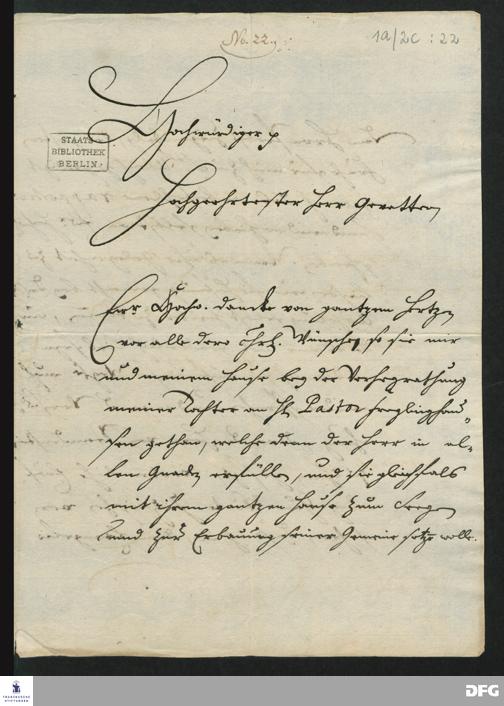 No. 22.
1a/2c : 22
STAATS-
BIBLIOTHEK
BERLIN
Hochwürdiger p
Hochgeehrtester Herr Gevatter
Ewr. Hochw. dancke von gantzem Hertzen
vor alle dero Chrl. Wünsche, so sie mir
und meinem Hause bey der Verheyrathung
meiner Tochter an H. Pastor Freylinghau-
sen gethan, welche denn der Herr in al-
len Gnaden erfülle, und sie gleichfals
mit ihrem gantzen Hause zum Seegen
und zur Erbauung seiner Gemeine setzen wolle.
FRANCKESCHE
STIFTUNGEN
DFG